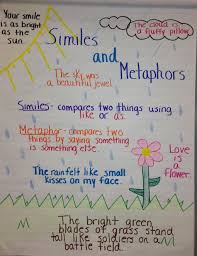 Your smile
is as bright
as the
sun.
The cloud is
a fluffy pillow.
Similes
and
Metaphors
The sky was
a beautiful jewel.
Similes- compares two things using
like or as.
Metaphor- compares two
things by saying something
is something else.
Love
is a
flower.
The rain felt like small
kisses on my face.
The bright green
blades of grass stand
tall like soldiers on a
battle field.